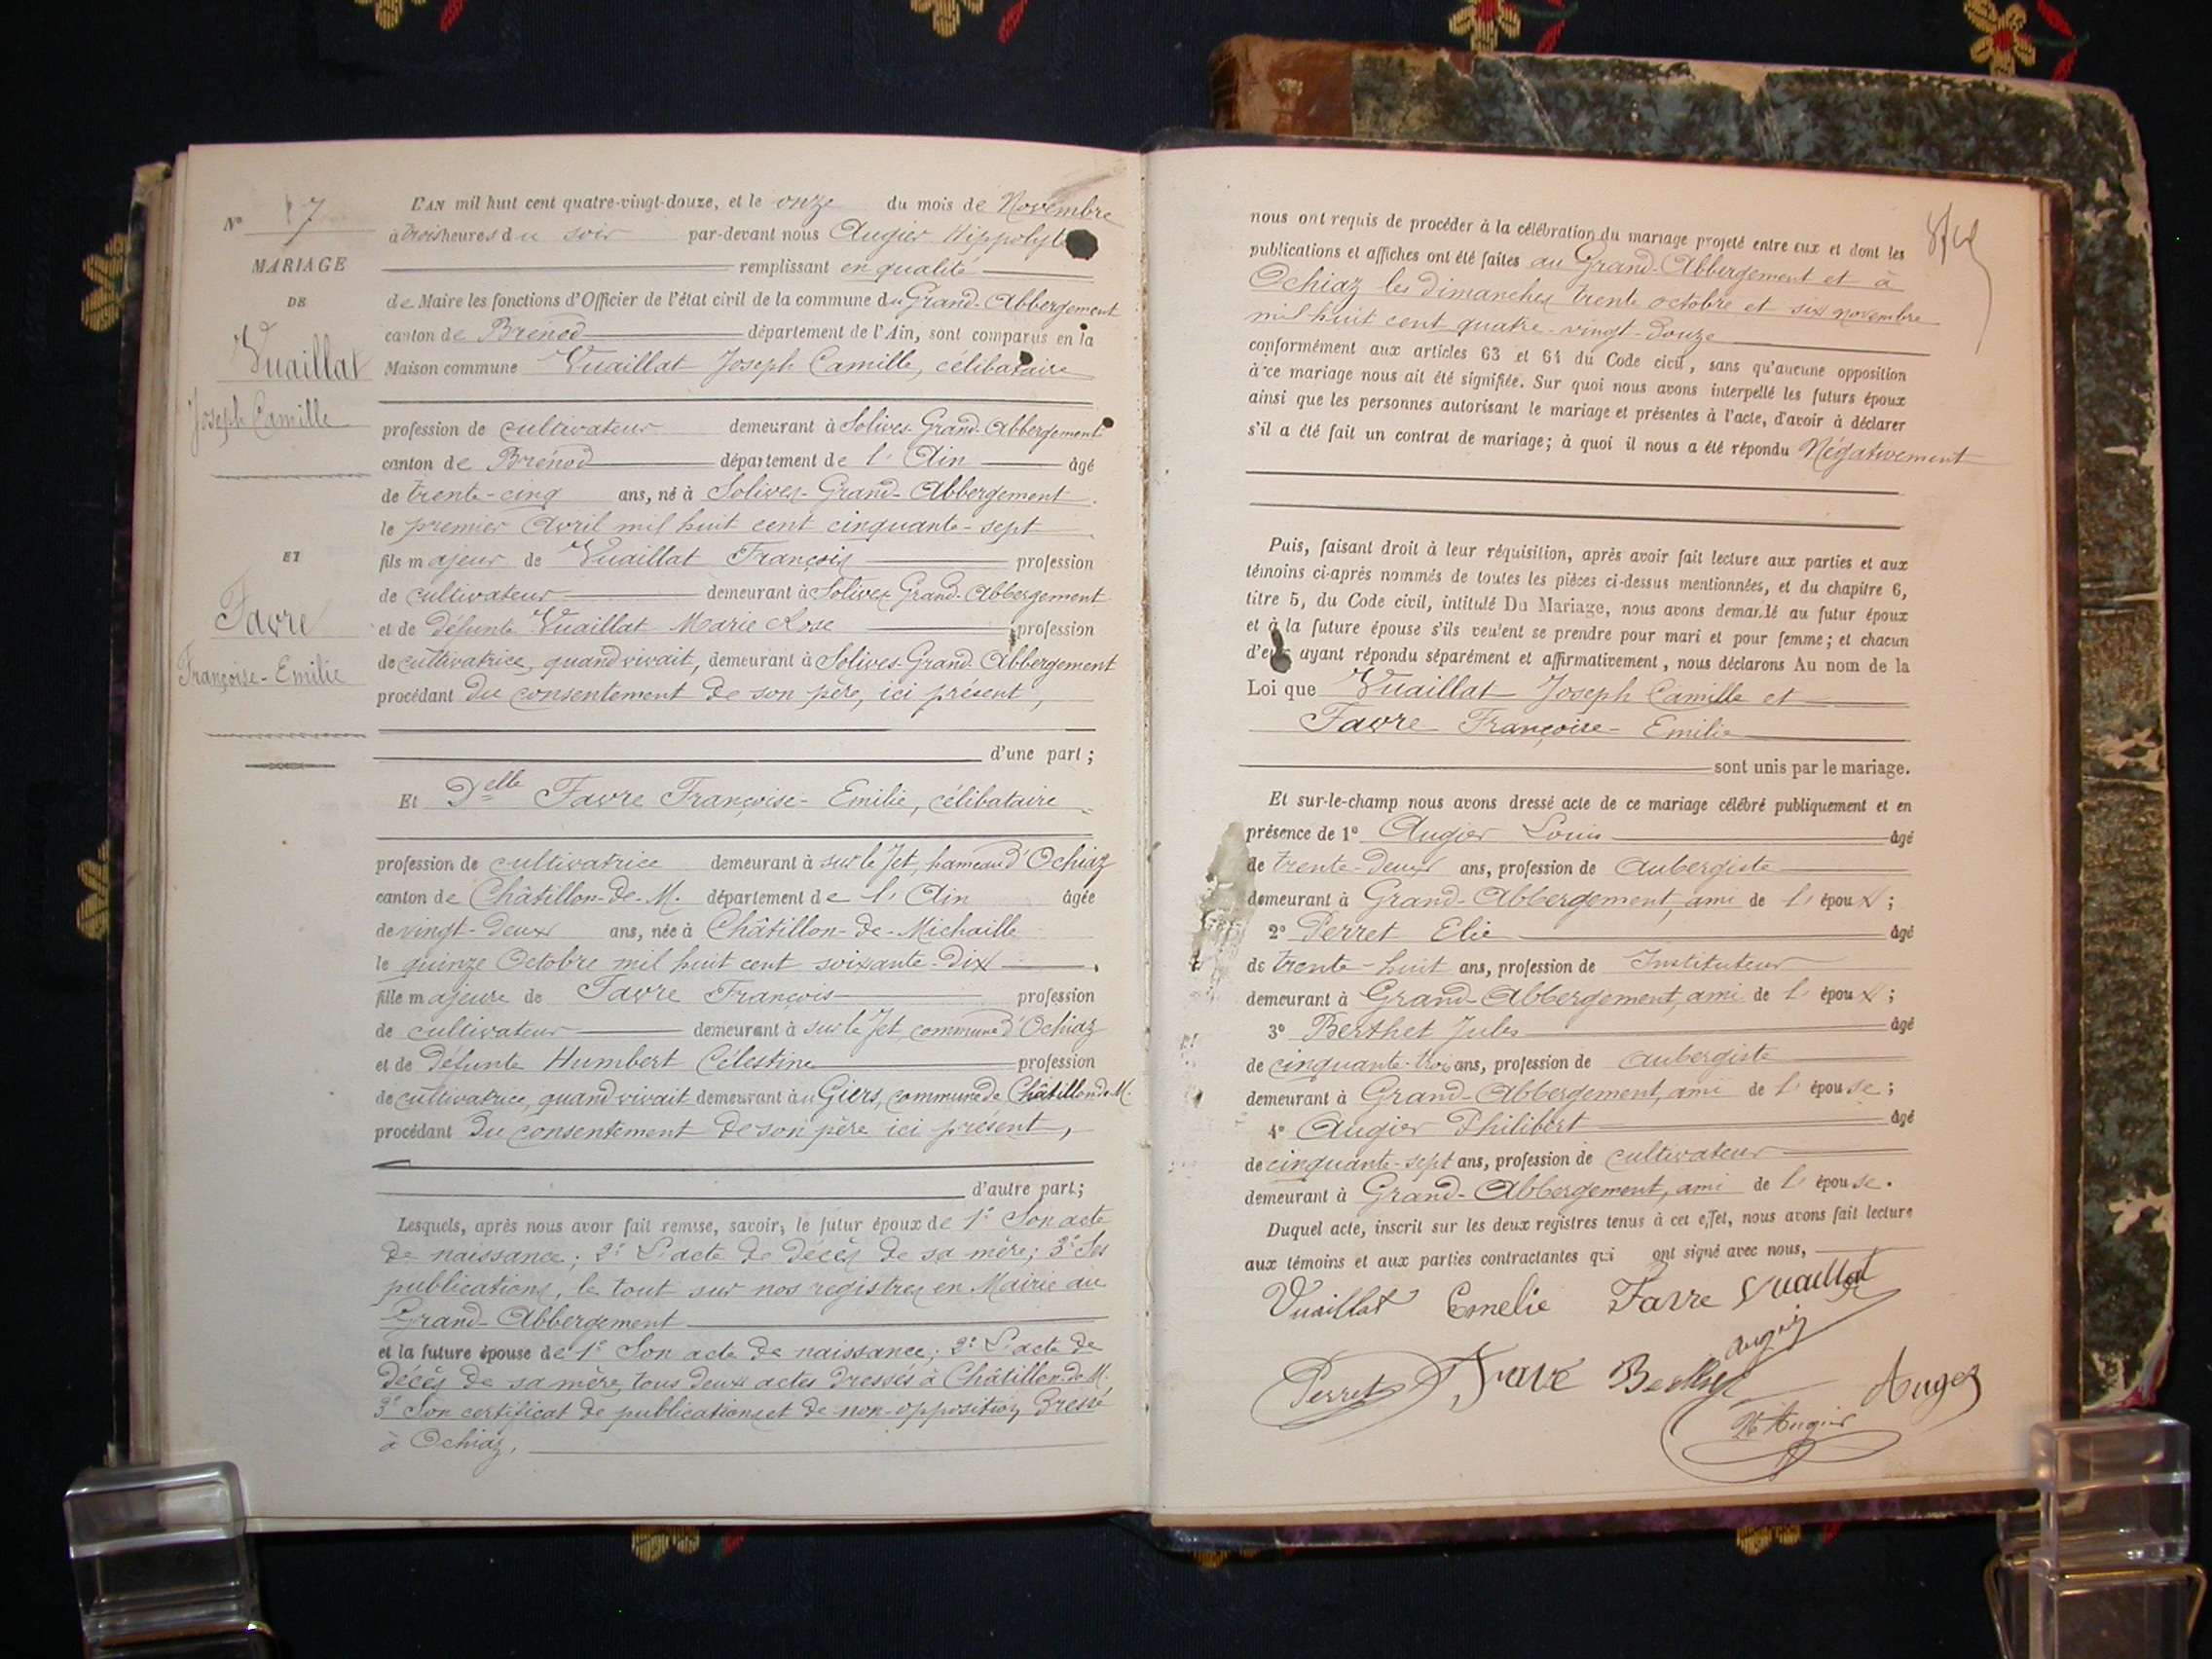 N° 7
MARIAGE
DE
Vuaillat
Joseph Camille
ET
Favre
Françoise-Emilie
L'AN mil huit cent quatre-vingt-douze, et le onze du mois de Novembre
à trois heures du soir par-devant nous Augier Hippolyte
remplissant en qualité
de Maire les fonctions d'Officier de l'état civil de la commune du Grand-Abbergement
canton de Brénod département de l'Ain, sont comparus en la
Maison commune Vuaillat Joseph Camille, célibataire
profession de cultivateur demeurant à Solives-Grand-Abbergement
canton de Brénod département de l'Ain âgé
de trente-cinq ans, né à Solives-Grand-Abbergement
le premier Avril mil huit cent cinquante-sept
fils majeur de Vuaillat François profession
de cultivateur demeurant à Solives Grand-Abbergement
et de défunte Vuaillat Marie Rose profession
de cultivatrice, quand vivait, demeurant à Solives-Grand-Abbergement
procédant du consentement de son père, ici présent,
d'une part ;
Et Delle Favre Françoise-Emilie, célibataire
profession de cultivatrice demeurant à sur le Jet, hameau d'Ochiaz
canton de Châtillon-de-M. département de l'Ain âgée
de vingt-deux ans, née à Châtillon-de-Michaille
le quinze Octobre mil huit cent soixante-dix
fille majeure de Favre François profession
de cultivateur demeurant à sur le Jet, commune d'Ochiaz
et de défunte Humbert Célestine profession
de cultivatrice, quand vivait demeurant à u Giers, commune de Châtillon de M.
procédant du consentement de son père ici présent,
d'autre part ;
Lesquels, après nous avoir fait remise, savoir, le futur époux de 1° Son acte
de naissance ; 2° L'acte de décès de sa mère ; 3° Ses
publications, le tout sur nos registres en Mairie du
Grand-Abbergement
et la future épouse de 1° Son acte de naissance ; 2° L'acte de
décès de sa mère, tous deux actes dressés à Châtillon-de-M.
3° Son certificat de publications et de non-opposition dressé
à Ochiaz.
nous ont requis de procéder à la célébration du mariage projeté entre eux et dont les
publications et affiches ont été faites au Grand-Abbergement et à
Ochiaz les dimanches trente octobre et six novembre
mil huit cent quatre-vingt-douze
conformément aux articles 63 et 64 du Code civil, sans qu'aucune opposition
à ce mariage nous ait été signifiée. Sur quoi nous avons interpellé les futurs époux
ainsi que les personnes autorisant le mariage et présentes à l'acte, d'avoir à déclarer
s'il a été fait un contrat de mariage ; à quoi il nous a été répondu Négativement
Puis, faisant droit à leur réquisition, après avoir fait lecture aux parties et aux
témoins ci-après nommés de toutes les pièces ci-dessus mentionnées, et du chapitre 6,
titre 5, du Code civil, intitulé Du Mariage, nous avons demandé au futur époux
et à la future épouse s'ils veulent se prendre pour mari et pour femme ; et chacun
d'eux ayant répondu séparément et affirmativement, nous déclarons Au nom de la
Loi que Vuaillat Joseph Camille et
Favre Françoise-Emilie
sont unis par le mariage.
Et sur-le-champ nous avons dressé acte de ce mariage célébré publiquement et en
présence de 1° Augier Louis âgé
de trente-deux ans, profession de Aubergiste
demeurant à Grand-Abbergement, ami de l'époux ;
2° Perret Elie âgé
de trente-huit ans, profession de Instituteur
demeurant à Grand-Abbergement, ami de l'époux ;
3° Berthet Jules âgé
de cinquante-trois ans, profession de aubergiste
demeurant à Grand-Abbergement, ami de l'épouse ;
4° Augier Philibert âgé
de cinquante-sept ans, profession de cultivateur
demeurant à Grand-Abbergement, ami de l'épouse.
Duquel acte, inscrit sur les deux registres tenus à cet effet, nous avons fait lecture
aux témoins et aux parties contractantes qui ont signé avec nous,
Vuaillat Emelie Favre Vuaillat
Augier
Perret Favre Berthet Auger
H Augier